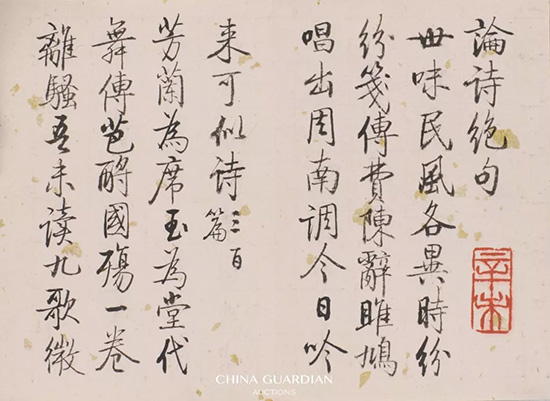 論诗絶句
世味民風各異時紛
紛箋傳費陳辭雎鳩
唱出周南調今日吟
来可似诗三百篇
芳蘭為席玉為堂代
舞傳芭酹國殤一卷
離騷吾未读九歌微
辛未
CHINA GUARDIAN
AUCTIONS